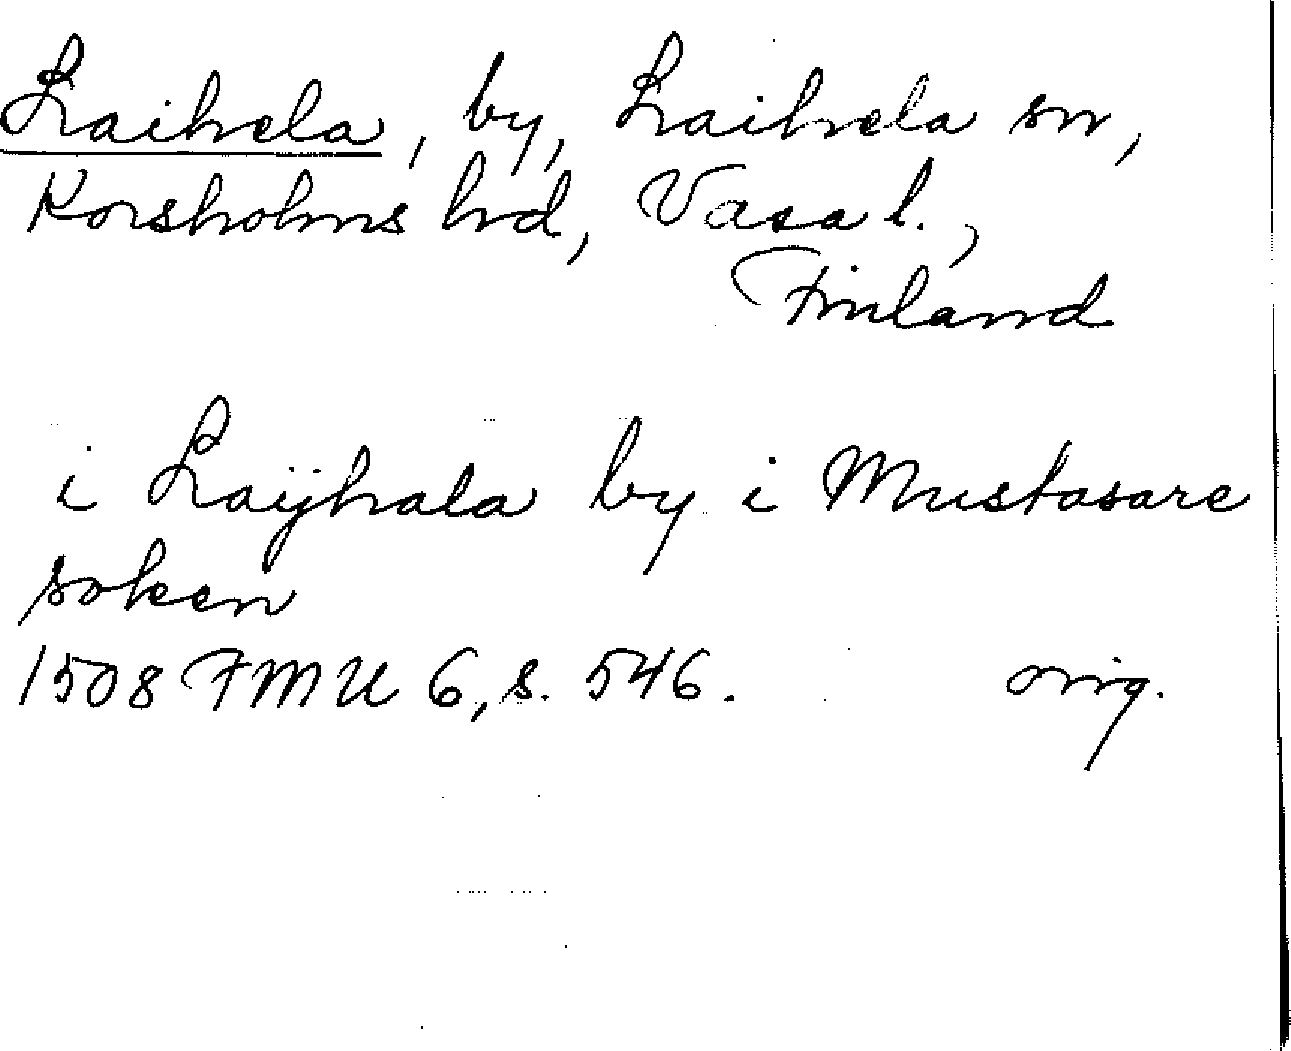 Laihela, by, Laihela sn,
Korsholms hd, Vasa l.,
Finland
i Laÿhala by i Mustasare
soken
1508 FMU 6, s. 546. orig.